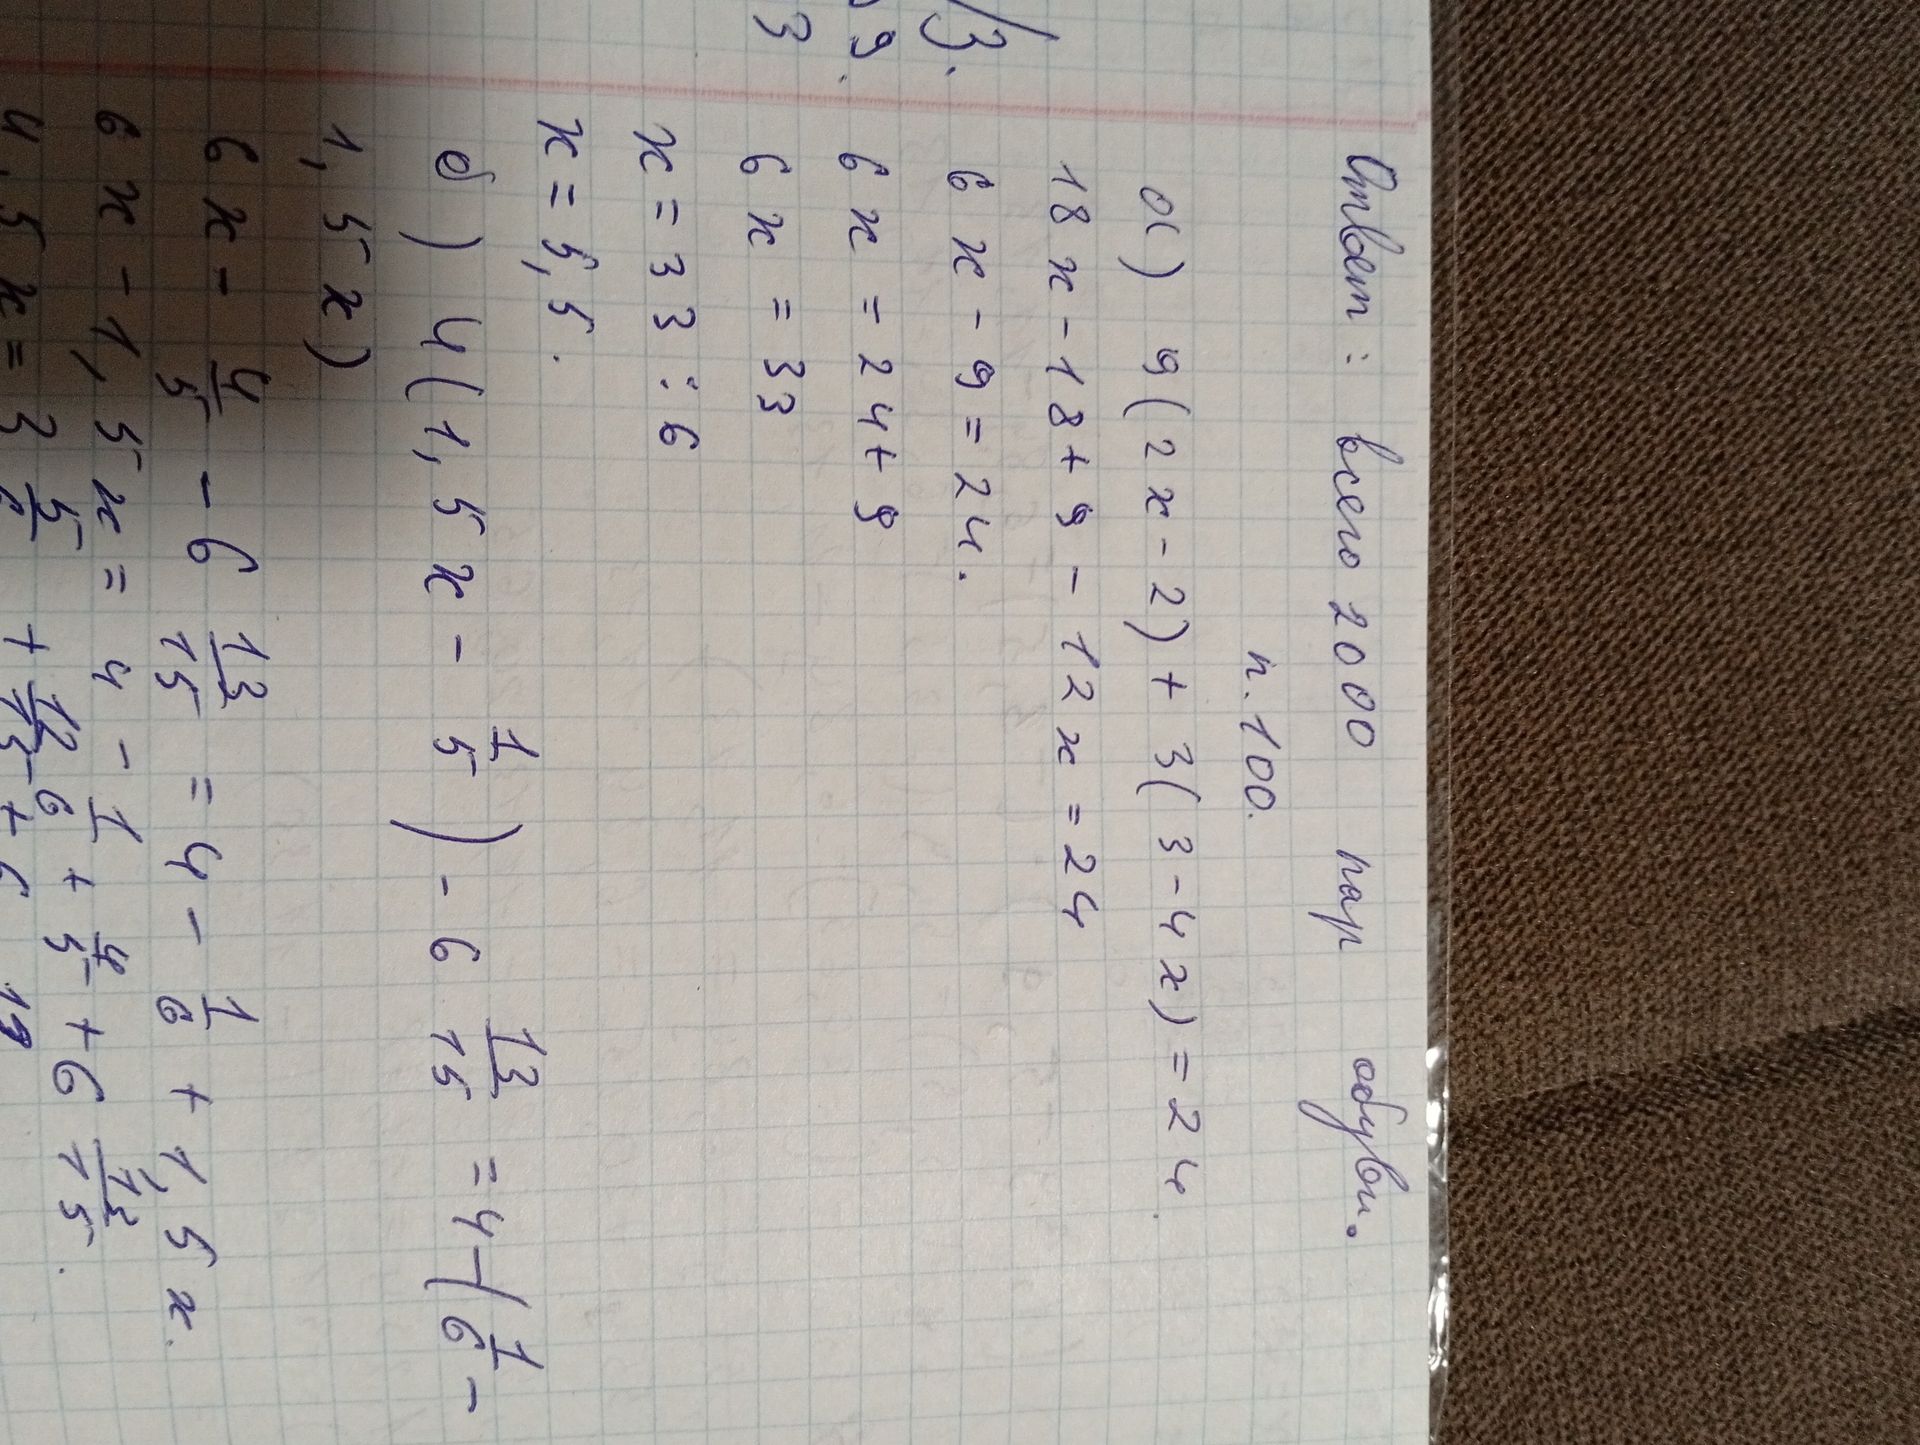 Ответ: всего 2000 пар обуви.
п.100.
а) 9(2x-2)+3(3-4x)=24
18x-18+9-12x=24
6x-9=24.
6x=24+9
6x=33
x=33:6
x=5,5.
б) 4(1,5x-1/5)-6 13/15=4-(1/6-
1,5x)
6x-4/5-6 13/15=4-1/6+1,5x.
6x-1,5x=4-1/6+4/5+6 13/15.
4,5x=3 5/
/3.
9.
3